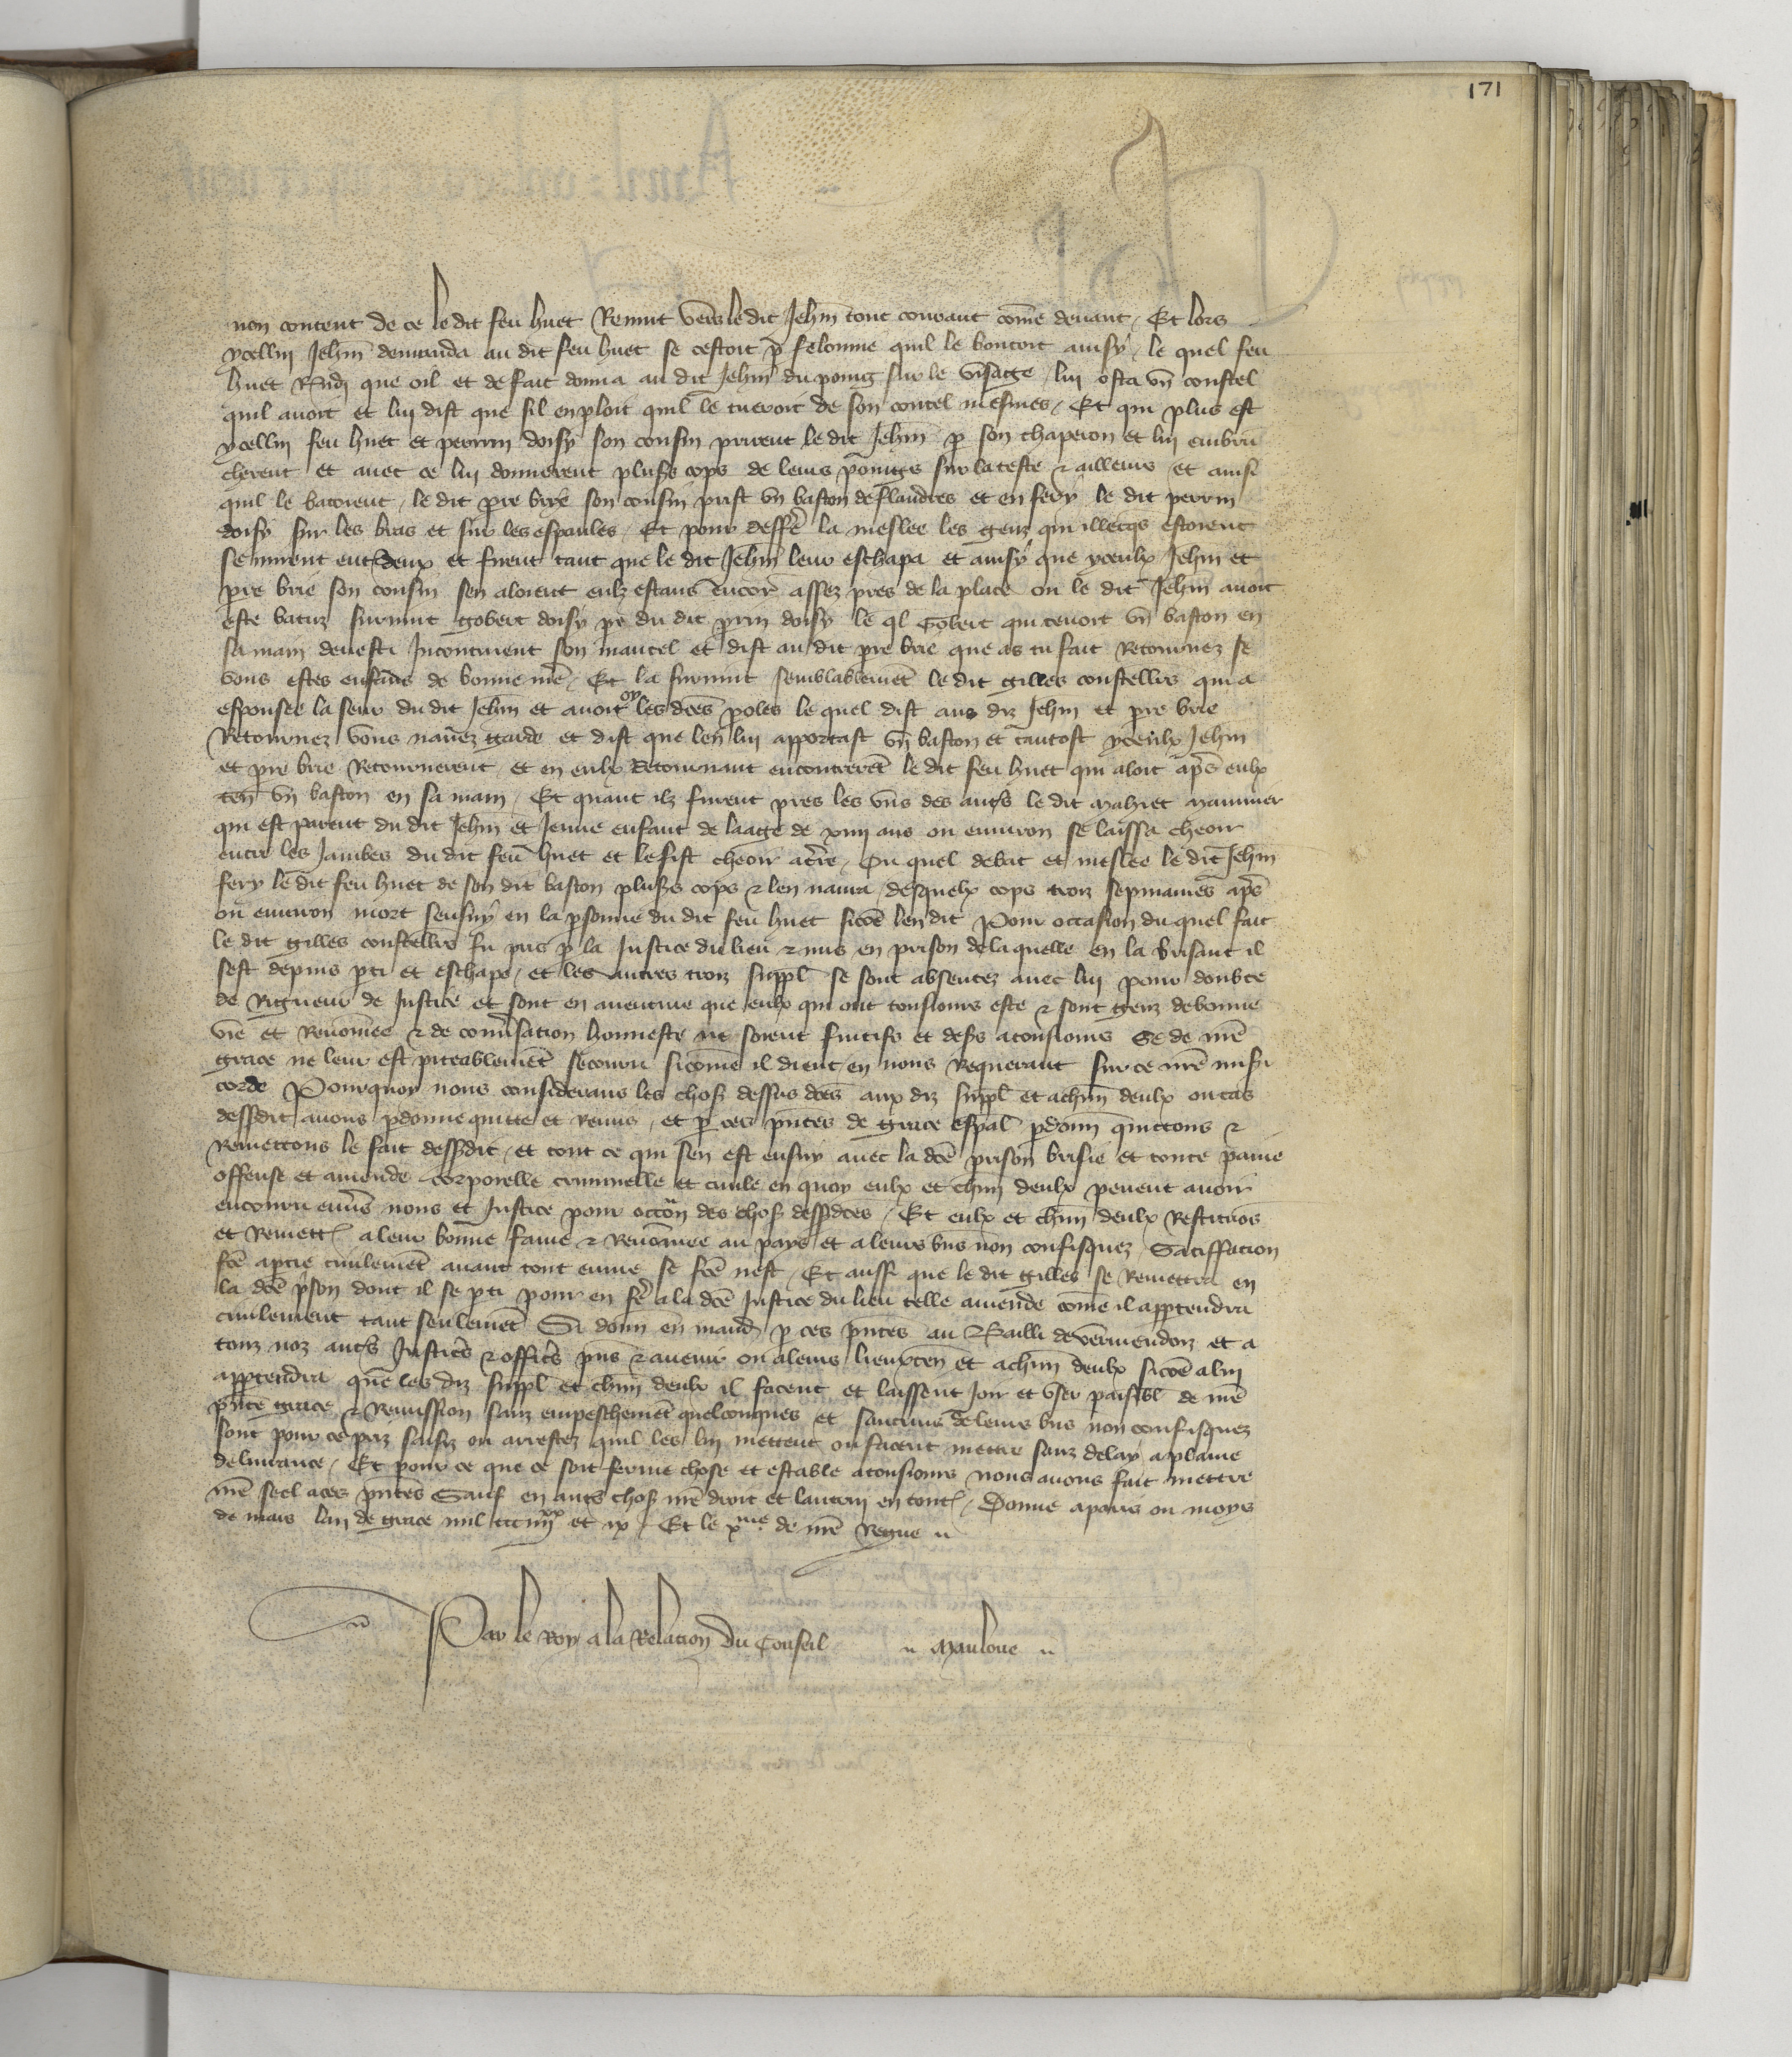 171
non content de ce le dit feu huet Revint vers le dit Jehan tout courant come devant / Et lors
ycellui Jehan demanda au dit feu huet se cestoit p felonnie quil le boutoit ainsy / le quel feu
huet Rendi que oil et de fait donna au dit Jehan du poing sur le visaige / lui osta un coustel
quil avoit et lui dist que sil en ploit quil le tueroit de son coutel mesmes / Et qui plus est
ycellui feu huet et perrin doisy son cousin prirent le dit Jehan p son chaperon et lui embrun
cherent et avec ce lui donnerent pluss cops de leurs poings sur la teste & ailleurs et ainsi
quil le batoient / le dit pre brie son cousin prist un baston de flandres et en fery le dit perrin
doisy sur les bras et sur les espaules / Et pour deffe la meslee les genz qui illecqs estoient
se mirent entredeux et firent tant que le dit Jehan leur eschapa et ainsy que yceulx Jehan et
pre brie son cousin sen aloient eulz estans encor assez pres de la place ou le dit Jehan avoit
este batuz survint gobert doisy pe du dit prin doisy le ql Gobert qui tenoit un baston en
sa main devesti Incontinent son mantel et dist au dit pre brie que as tu fait Retournez se
vous estes enfans de bonne me / Et la survint semblablement le dit gilles coustellirs qui a
espousee la seur du dit Jehan et avoit oy les dces poles le quel dist aus diz Jehan et pre brie
Retournez vous navez garde et dist que len lui apportast un baston et tantost yceulx Jehan
et pre brie Retournerent et en eulx Retournant encontreret le dit feu huet qui aloit aps eulx
ten un baston en sa main / Et quant ilz furent pres les uns des auts le dit mahiet
qui est parent du dit Jehan et Jenne enfant de laage de xiiii ans ou environ se laissa cheoir
entre les Jambes du dit feu huet et le fist cheoir a tre / Ou quel debat et meslee le dit Jehan
fery le dit feu huet de son dit baston pluss cops & len navra / desquelx cops troiz sepmaines aps
ou environ mort sensuy en la psonne du dit feu huet sicoe len dit Pour occasion du quel fait
le dit gilles coustellirs fu pris p la Justice du lieu & mis en prison de laquelle en la brisant il
sest depuis pti et eschape / et les autres troiz suppl se sont absentez avec lui pour doubte
de Rigueur de Justice et sont en aventure que eulx qui ont tousiours este & sont genz de bonne
vie et Renomee & de conversacion honneste ne soient fuitifs et dess a tousiours Se de nre
grace ne leur est piteablement secouru sicome il dient en nous Requerant sur ce nre misi
corde Pourquoy nous considerans les choss dessus dces aux diz suppl et a chun deulx ou cas
dessdit avons pdonne quitte et Remis / et p ces pntes de grace espal pdonn quittons &
Remettons le fait dessdit / et tout ce qui sen est ensuy avec la dce prison brisie et toute paine
offense et amende corporelle criminelle et civile en quoy eulx et chun deulx pevent avoir
encouru envs nous et Justice pour occon des choss dessdces / Et eulx et chun deulx Restituos
et Remett a leur bonne fame & Renomee au pays et a leurs bns non confisquez Satiffacion
fce a ptie civilement avant tout euvre se fce nest / Et aussi que le dit gilles se Remettra en
la dce pson dont il se pti pour en fe a la dce Justice du lieu telle amende come il apptendra
civilement tant seulemet Si donn en mand p ces pntes au Bailli de vermendoiz et a
touz noz auts Justices & offices pns & avenir ou a leurs lieuxten et a chun deulx sicoe a lui
apptendra que les diz suppl et chun deulx il facent et laissent Joir et user paisibl de nre
pnte grace & Remission sanz empeschement quelconques et saucuns de leurs bns non confisquez
sont pour ce priz saisiz ou arrestez quil les lui mettent ou facent mettre sanz delay a plaine
delivrance / Et pour ce que ce soit ferme chose et estable a tousiours nous avons fait mettre
nre seel a ces pntes Sauf en auts choss nre droit et lautrui en tout / Donne a paris ou moys
de mars lan de grace mil ccc iiiixx et ix / Et le xme de nre Regne
Par le Roy a la Relacion du Conseil Mauloue